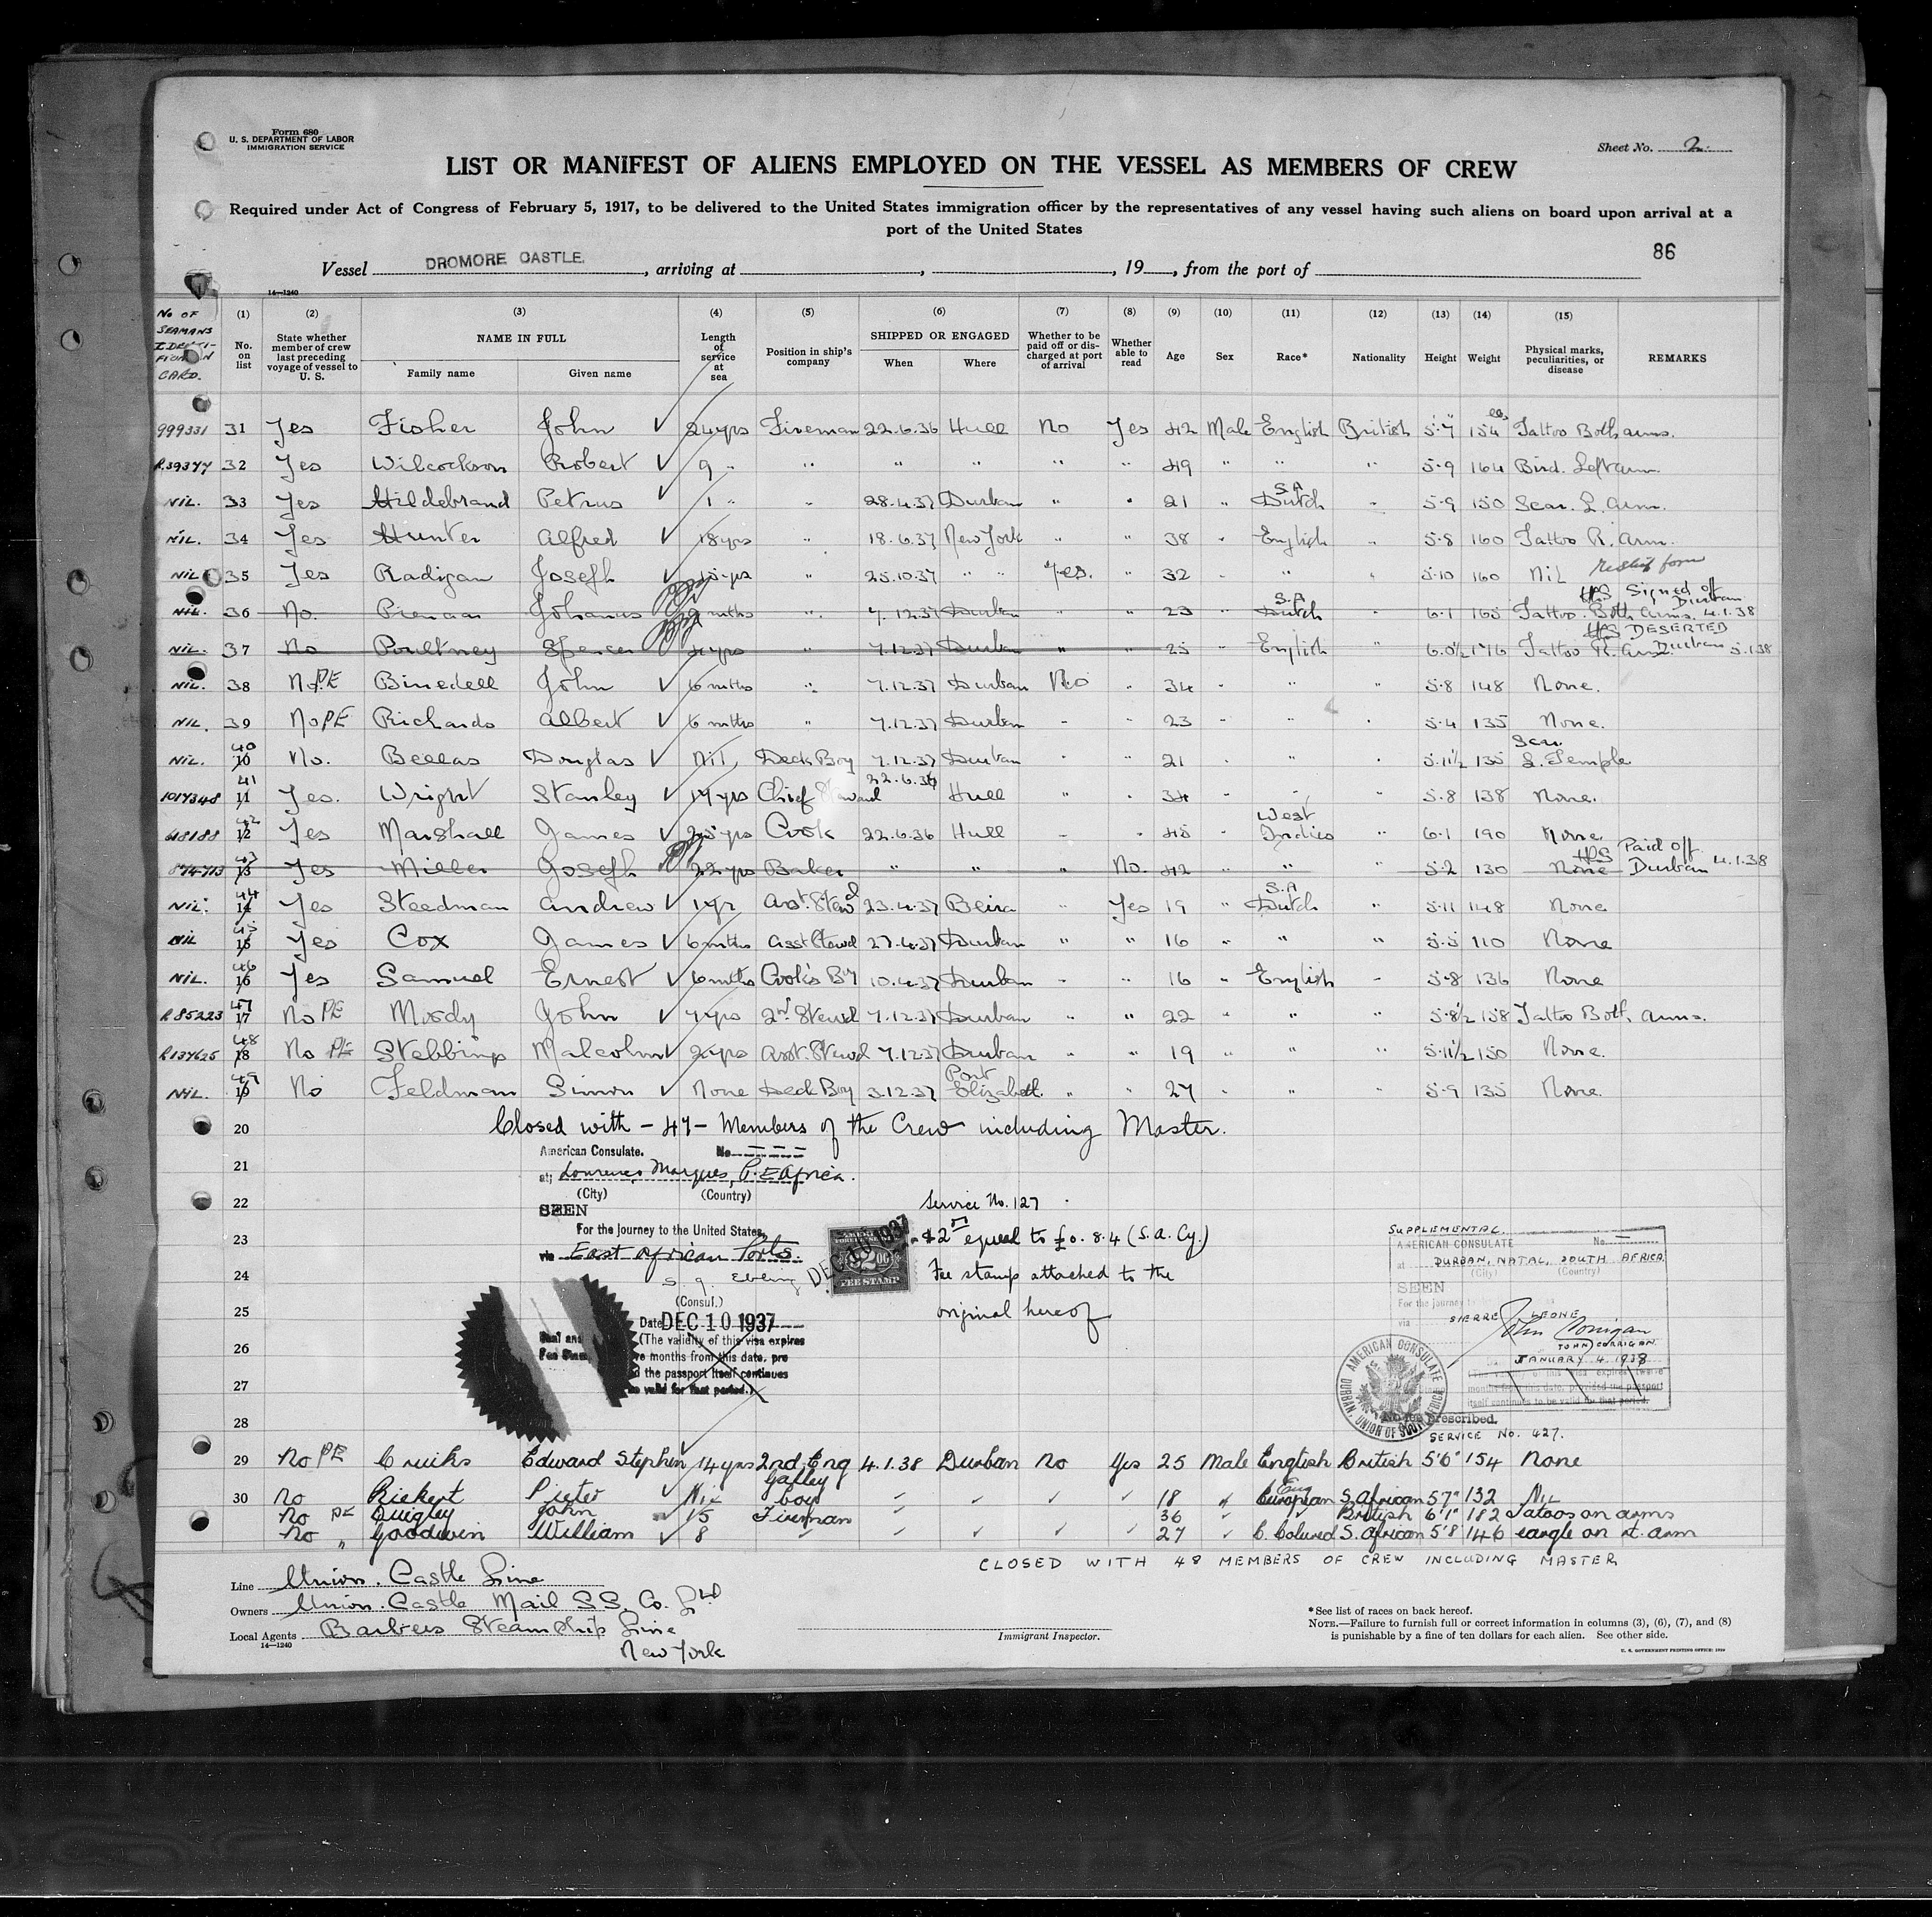 Form 680
U. S. DEPARTMENT OF LABOR
IMMIGRATION SERVICE
Sheet No. 2.
LIST OR MANIFEST OF ALIENS EMPLOYED ON THE VESSEL AS MEMBERS OF CREW
Required under Act of Congress of February 5, 1917, to be delivered to the United States immigration officer by the representatives of any vessel having such aliens on board upon arrival at a
port of the United States
86
Vessel DROMORE CASTLE, arriving at , , 19 , from the port of
14—1240
No OF SEAMANS CARD. (1) No. on list (2) State whether member of crew last preceding voyage of vessel to U. S. (3) NAME IN FULL Family name Given name (4) Length of service at sea (5) Position in ship's company (6) SHIPPED OR ENGAGED When Where (7) Whether to be paid off or discharged at port of arrival (8) Whether able to read (9) Age (10) Sex (11) Race* (12) Nationality (13) Height (14) Weight (15) Physical marks, peculiarities, or disease REMARKS
999331 31 Yes Fisher John 24 yrs Fireman 22.6.36 Hull No Yes 42 Male English British 5.7 154 lbs Tattoo Both arms.
R.39377 32 Yes Wilcockson Robert 9 " " " " " " 49 " " " 5.9 164 Bird. Left arm.
NIL. 33 Yes Hildebrand Petrus 1 " " 28.4.37 Durban " " 21 " S.A Dutch " 5.9 150 Scar. L. arm.
NIL. 34 Yes Hunter Alfred 18 yrs " 18.6.37 New York " " 38 " English " 5.8 160 Tattoo R. Arm.
NIL 35 Yes Radigan Joseph 15 yrs " 25.10.37 " " Yes. " 32 " " " 5.10 160 Nil
NIL. 36 No. Pienaar Johanus 9 mths " 7.12.37 Durban " " 23 " S.A Dutch " 6.1 165 Tattoo. Both arms. Signed off Durban 4.1.38
NIL. 37 No Poultney Spencer 4 yrs " 7.12.37 Durban " " 25 " English " 6.0½ 176 Tattoo R. arm. DESERTED Durban 5.1.38
NIL. 38 No PE Binedell John 6 mths " 7.12.37 Durban No " 34 " " " 5.8 148 None.
NIL. 39 No PE Richards Albert 6 mths " 7.12.37 Durban " " 23 " " " 5.4 135 None.
NIL. 40 10 No. Bellas Douglas Nil Deck Boy 7.12.37 Durban " " 21 " " " 5.11½ 135 Scar. L. Temple
1017348 41 11 Yes. Wright Stanley 17 yrs Chief Steward 22.6.36 Hull " " 34 " " 5.8 138 None.
618188 42 12 Yes Marshall James 25 yrs Cook 22.6.36 Hull " " 45 " West Indies " 6.1 190 None
874713 43 13 Yes Miller Joseph 22 yrs Baker " " " No. 42 " " " 5.2 130 None Paid off Durban 4.1.38
NIL. 44 14 Yes Steedman Andrew 1 yr Asst. Stewd 23.4.37 Beira " Yes 19 " S.A Dutch " 5.11 148 None
NIL 45 15 Yes Cox James 6 mths Asst Stewd 27.4.37 Durban " " 16 " " " 5.5 110 None
NIL. 46 16 Yes Samuel Ernest 6 mths Cook's Boy 10.4.37 Durban " " 16 " English " 5.8 136 None
R 85223 47 17 No PE Moody John 4 yrs 2nd Stewd 7.12.37 Durban " " 22 " " " 5.8½ 158 Tattoo Both arms.
R137625 48 18 No PE Stebbings Malcolm 2 yrs Asst. Stewd 7.12.37 Durban " " 19 " " " 5.11½ 150 None.
NIL. 49 19 No Feldman Simon None Deck Boy 3.12.37 Port Elizabeth. " " 27 " " " 5.9 135 None.
20 Closed with - 47 - Members of the Crew including Master.
American Consulate. No
21 at; Lourenco Marques, P. E Africa.
(City) (Country)
22 SEEN
Service No. 127
For the journey to the United States,
23 via East African Ports.
$2.00 equal to £0. 8.4 (S.a. Cy.)
24 Fee stamp attached to the
$2.00 FEE STAMP
DEC 10 1937
(Consul.)
25 original hereof
Date DEC 10 1937
(The validity of this visa expires
26
months from this date, pro
the passport itself continues
27
valid for that period.)
28
SUPPLEMENTAL.
AMERICAN CONSULATE No.
at DURBAN, NATAL, SOUTH AFRICA
(City) (Country)
SEEN
For the journey
via SIERRE LEONE
John Corrigan
JOHN CORRIGAN
JANUARY 4 1938
itself continues to be valid for that period.
AMERICAN CONSULATE DURBAN, UNION OF SOUTH AFRICA
No fee prescribed.
SERVICE NO. 427.
29 No PE Cruiks Edward Stephen 14 yrs 2nd Eng 4.1.38 Durban No Yes 25 Male English British 5'6" 154 None
30 No Riekert Pieter Nil Galley boy " " " " 18 " European S. African 5'7" 132 Nil
No PE Quigley John 15 Fireman 36 " " British 6'1" 182 Tatoos on arms
No " Goodwin William 8 " " " " " 27 " C. Colured S. African 5'8 146 eargle on rt. arm
CLOSED WITH 48 MEMBERS OF CREW INCLUDING MASTER
Line Union. Castle Line
Owners Union. Castle Mail S.S. Co. Ltd
Local Agents Barbers Steamship Line
14—1240
New York
Immigrant Inspector.
*See list of races on back hereof.
NOTE.—Failure to furnish full or correct information in columns (3), (6), (7), and (8)
is punishable by a fine of ten dollars for each alien. See other side.
U. S. GOVERNMENT PRINTING OFFICE